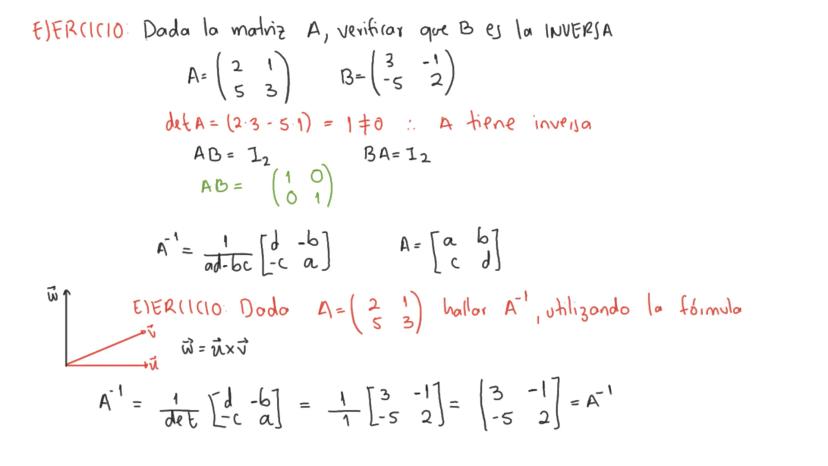 EJERCICIO: Dada la matriz A, verificar que B es la INVERSA
A = (2 1; 5 3) B = (3 -1; -5 2)
det A = (2·3 - 5·1) = 1 ≠ 0 ∴ A tiene inversa
AB = I₂ BA = I₂
AB = (1 0; 0 1)
A⁻¹ = 1/(ad-bc) [d -b; -c a] A = [a b; c d]
EJERCICIO: Dada A = (2 1; 5 3) hallar A⁻¹, utilizando la fórmula
w⃗
v⃗
u⃗
w⃗ = u⃗ x v⃗
A⁻¹ = 1/det [d -b; -c a] = 1/1 [3 -1; -5 2] = [3 -1; -5 2] = A⁻¹